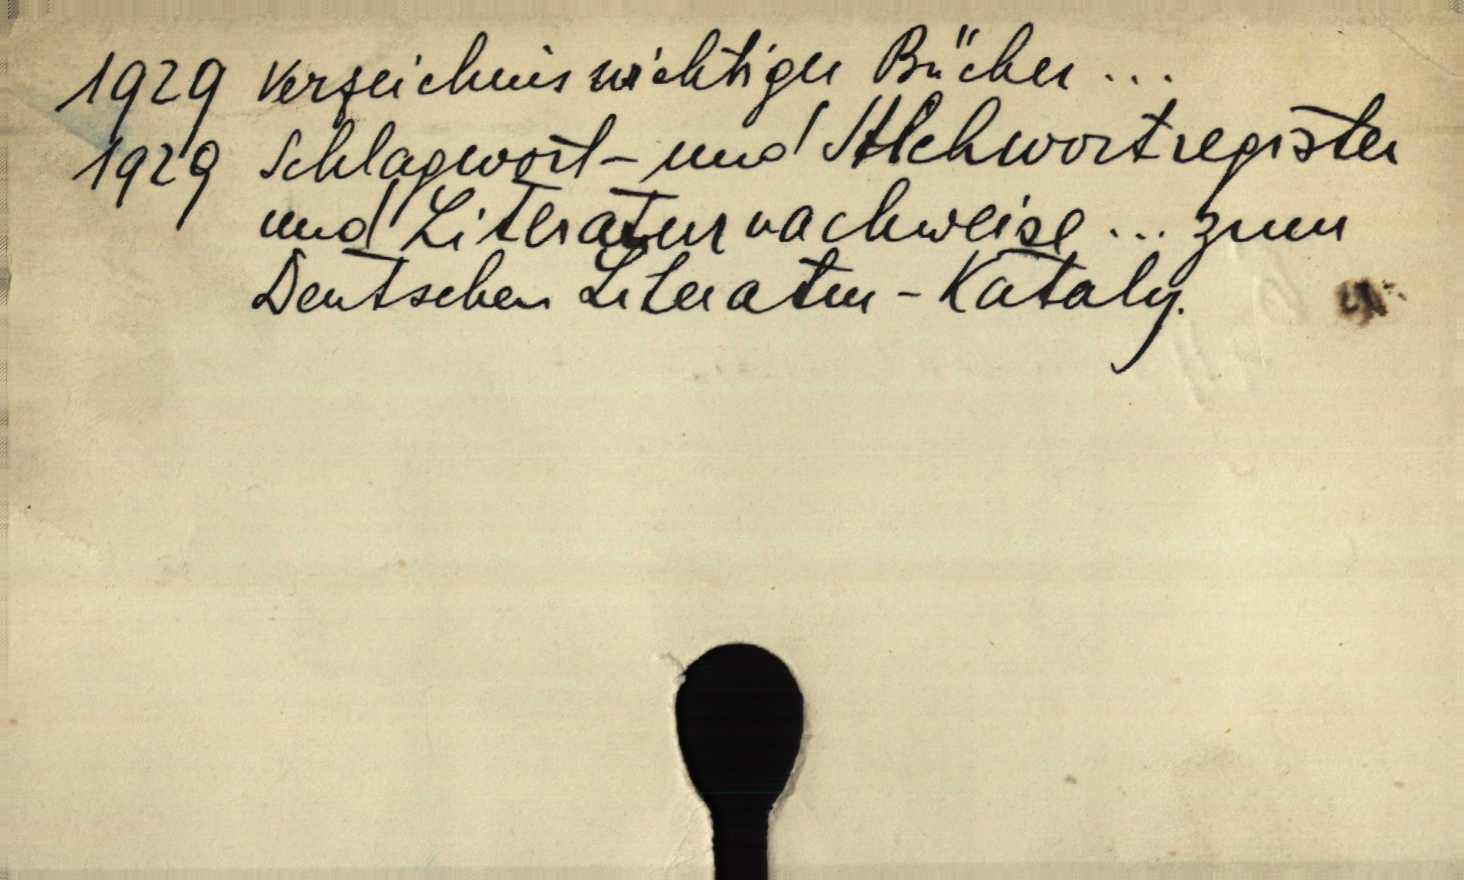 1929 Verzeichnis wichtiger Bücher ...
1929 Schlagwort- und Stichwortregister
und Literaturnachweise ... zum
Deutschen Literatur-Katalog.